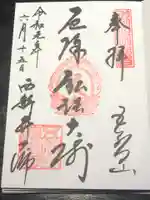 奉拝
五智山
厄除弘法大師
令和元年
六月十五日
西新井大師